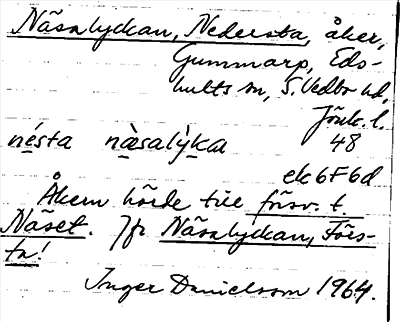 Näsalyckan, Nedersta, åker,
Gummarp, Eds-
hults sn, S. Vedbo hd,
Jönk. l.
nésta nàsalỳkaɩ 48
ek6F6d
Åkern hörde till försv. t.
Näset. Jfr Näsalyckan, Förs-
ta!
Inger Danielsson 1964.